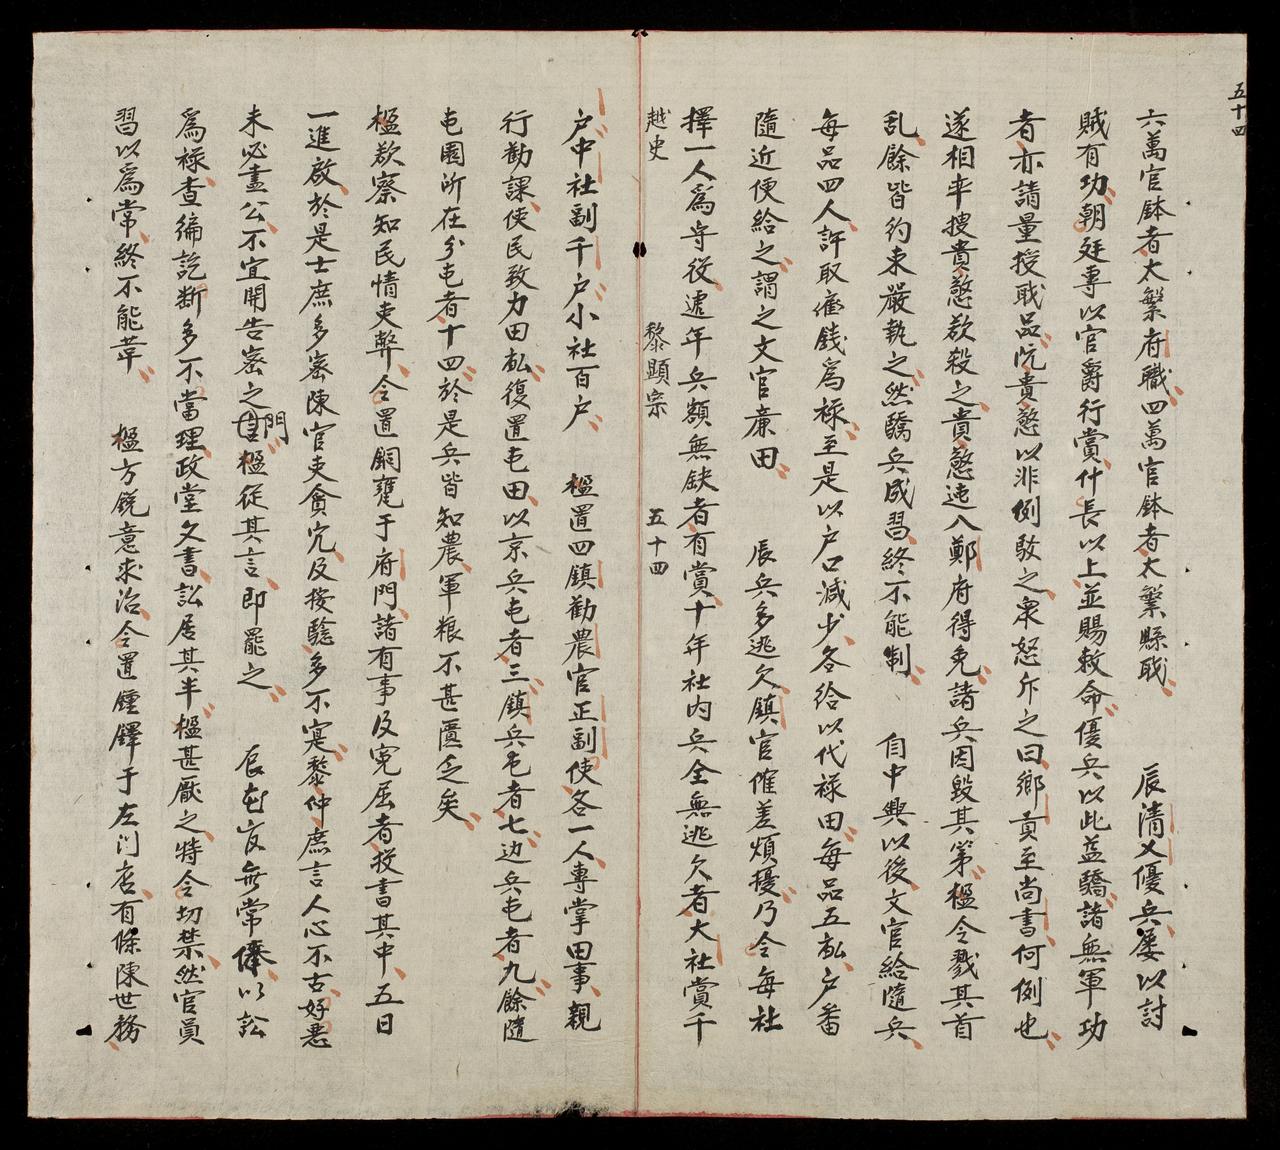 五十四
六萬官鉢者太繁府職四萬官鉢者太繁縣職 辰清乂優兵屡以討
賊有功朝廷專以官爵行賞什長以上並賜敕命優兵以此益驕諸無軍功
者亦請量授職品阮貴憗以非例駁之衆怒斥之曰鄉貢至尚書何例也
遂相率搜貴憗欲殺之貴憗迯入鄭府得免諸兵因毀其第楹令戮其首
乱餘皆約束嚴執之然驕兵成習終不能制 自中興以後文官給隨兵
每品四人許取雇錢爲禄至是以户口減少各給以代禄田每品五畝户番
隨近便給之謂之文官亷田 辰兵多逃欠鎮官催差煩擾乃令每社
擇一人爲守役遞年兵額無缺者有賞十年社内兵全無逃欠者大社賞千
越史 黎顯宗 五十四
户中社副千户小社百户 楹置四鎮勸農官正副使各一人專掌田事親
行勸課使民致力田畝復置屯田以京兵屯者三鎮兵屯者七边兵屯者九餘隨
屯園所在分屯者十四於是兵皆知農軍粮不甚匱乏矣
楹欲察知民情吏弊令置銅甕于府門諸有事及寃屈者投書其中五日
一進啟於是士庶多密陳官吏貪宂及按驗多不寔黎仲庶言人心不古好惡
未必盡公不宜開告密之門楹從其言即罷之 辰 度無常俸以訟
爲禄查徧訖断多不當理政堂文書訟居其半楹甚厭之特令切禁然官員
習以爲常終不能革 楹方銳意求治令置鍾鐸于左门店有條陳世務